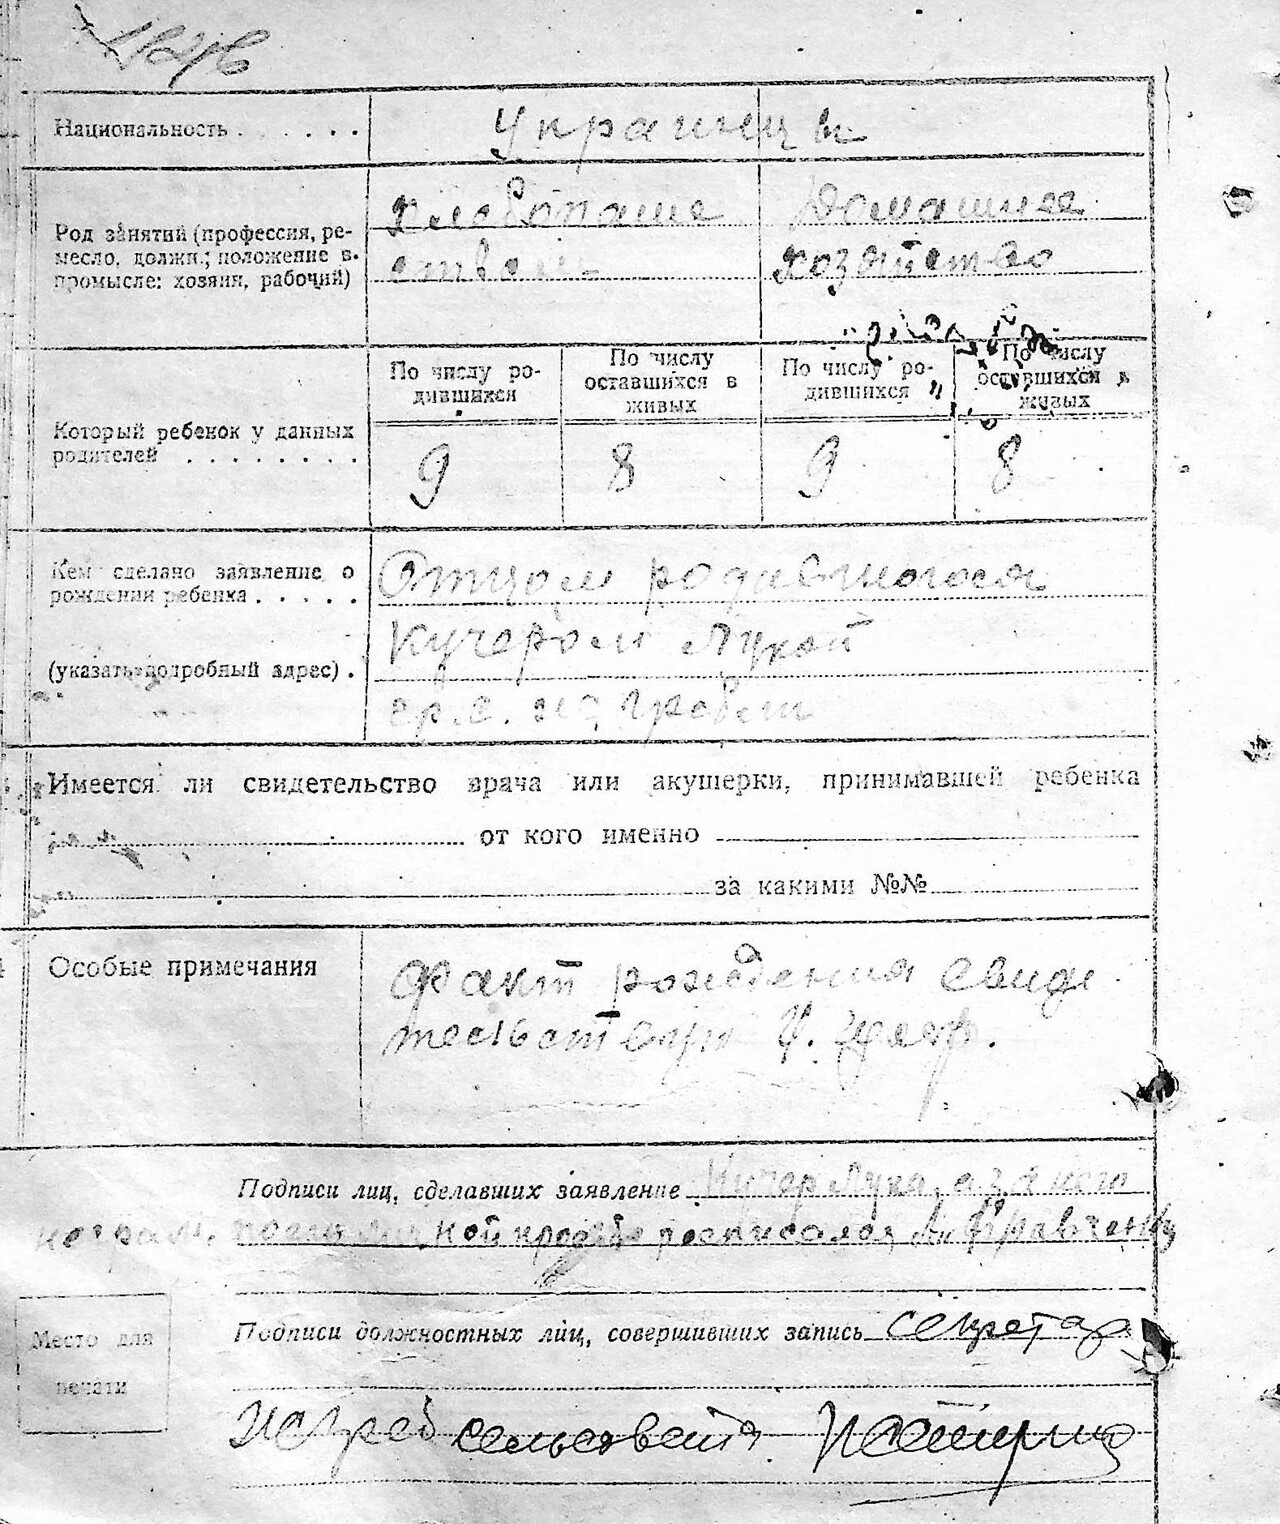 Национальность . . . . . .
Украинцы
Род занятий (профессия, ре-
месло, должн.; положение в.
промысле: хозяин, рабочий)
Хлебопаше
ством
Домашнее
хозяйство
По числу ро-
дившихся
По числу
оставшихся в
живых
По числу ро-
дившихся
По числу
оставшихся в
живых
Который ребенок у данных
родителей . . . . . . . .
9 8 9 8
Кем сделано заявление о
рождении ребенка . . . . .
(указать подробный адрес) .
Отцом родившогося
Кучером Лукой
гр. с.
Имеется ли свидетельство врача или акушерки, принимавшей ребенка
от кого именно
за какими №№
Особые примечания
Факт рождения свиде
тельствую
Подписи лиц, сделавших заявление Кучер Лука, а за него
неграм. по его личной просьбе росписался Кравченко
Место для
печати
Подписи должностных лиц, совершивших запись секретар
сельсовета